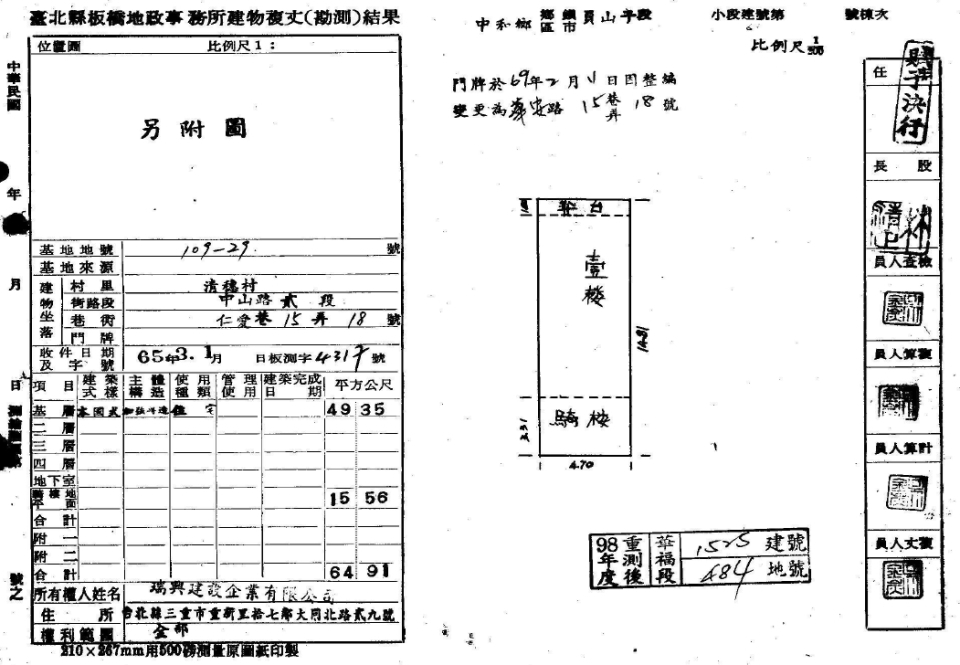 臺北縣板橋地政事務所建物複丈(勘測)結果
位置圖 比例尺1:
中華民國
年
月
日
號之
另附圖
基地地號 109-29. 號
基地來源
建物坐落
村里 清穗村
街路段 中山路貳段
巷街 仁愛巷15弄18號
門牌
收件日期及字號 65年3.1月 日板測字 號
項目 建築式樣 主體構造 使用種類 管理使用 建築完成日期 平方公尺
基層 本國式 住宅 49 35
二層
三層
四層
地下室
騎樓地平面 15 56
合計
附一
附二
合計 64 91
所有權人姓名 瑞興建設企業有限公司
住所 台北縣三重市重新里拾七鄰大同北路貳九號
權利範圍 全部
210×267mm用500磅測量原圖紙印製
中和鄉 鄉鎮區市 員山子段 小段建號第 號棟次
比例尺1/500
門牌於69年2月11日因整編
變更為 路15巷弄18號
平台
壹樓
騎樓
4.70
98年度重測後 華福段 1525 建號
484 地號
任
賦予決行
股長
檢查人員
複算人員
計算人員
複丈人員